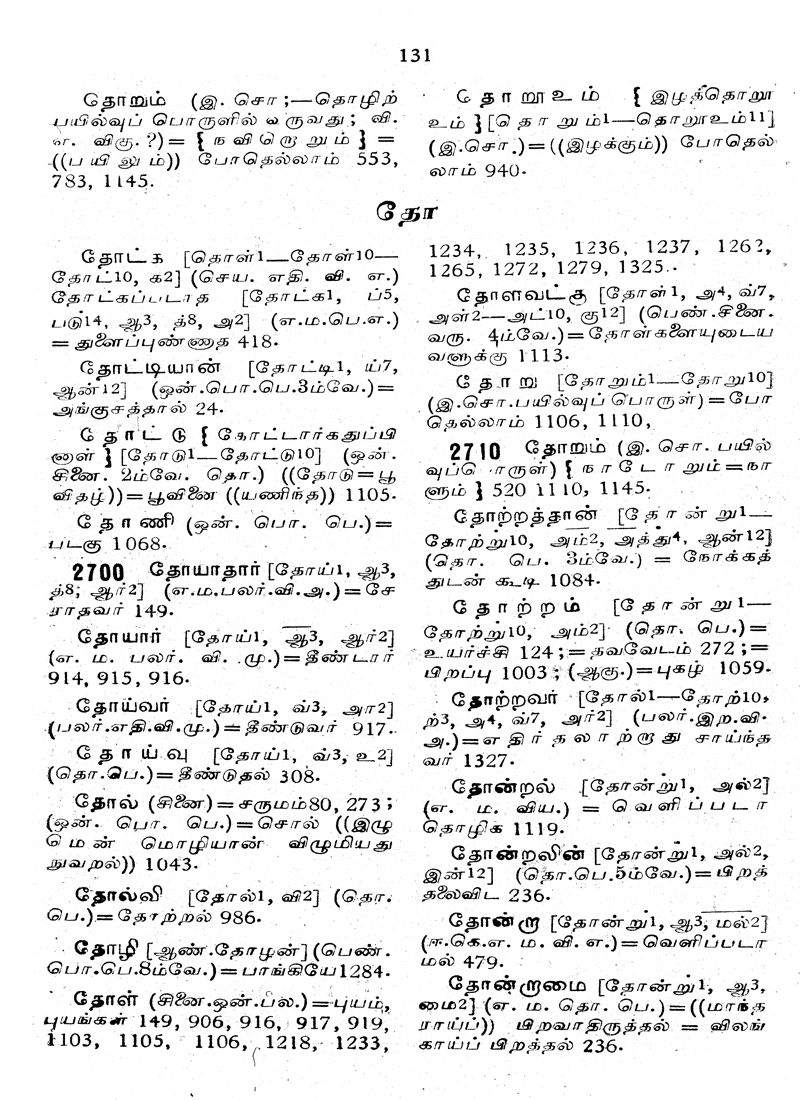 131
தொறும் (இ. சொ ;—தொழிற்
பயில்வுப் பொருளில் வருவது; வி.
எ. விகு. ?)= { நவிறொறும் } =
((பயிலும்)) போதெல்லாம் 553,
783, 1145.
தொறூஉம் { இழத்தொறூ
உம் } [தொறும்1—தொறூஉம்11]
(இ.சொ.)=((இழக்கும்)) போதெல்
லாம் 940.
தோ
தோட்க [தொள்1—தோள்10—
தோட்10, க2] (செய. எதி. வி. எ.)
தோட்கப்படாத [தோட்க1, ப்5,
படு14, ஆ3, த்8, அ2] (எ.ம.பெ.எ.)
= துளைப்புண்ணாத 418.
தோட்டியான் [தோட்டி1, ய்7,
ஆன்12] (ஒன்.பொ.பெ.3ம்வே.)=
அங்குசத்தால் 24.
தோட்டு { கோட்டார்கதுப்பி
னாள் } [தோடு1—தோட்டு10] (ஒன்.
சினை. 2ம்வே. தொ.) ((தோடு=பூ
விதழ்))=பூவினை ((யணிந்த)) 1105.
தோணி (ஒன். பொ. பெ.)=
படகு 1068.
2700 தோயாதார் [தோய்1, ஆ3,
த்8; ஆர்2] (எ.ம.பலர்.வி.அ.)=சே
ராதவர் 149.
தோயார் [தோய்1, ஆ3, ஆர்2]
(எ. ம. பலர். வி. மு.)=தீண்டார்
914, 915, 916.
தோய்வர் [தோய்1, வ்3, அர2]
(பலர்.எதி.வி.மு.)=தீண்டுவர் 917.
தோய்வு [தோய்1, வ்3, உ2]
(தொ.பெ.)=தீண்டுதல் 308.
தோல் (சினை)=சருமம்80, 273;
(ஒன். பொ. பெ.)=சொல் ((இழு
மென் மொழியான் விழுமியது
நுவறல்)) 1043.
தோல்வி [தோல்1, வி2] (தொ.
பெ.)=தோற்றல் 986.
தோழி [ஆண்.தோழன்] (பெண்.
பொ.பெ.8ம்வே.)=பாங்கியே1284.
தோள் (சினை.ஒன்.பல.)=புயம்,
புயங்கள் 149, 906, 916, 917, 919,
1103, 1105, 1106, 1218, 1233,
1234, 1235, 1236, 1237, 1262,
1265, 1272, 1279, 1325.
தோளவட்கு [தோள்1, அ4, வ்7,
அள்2—அட்10, கு12] (பெண்.சினை.
வரு. 4ம்வே.)=தோள்களையுடைய
வளுக்கு 1113.
தோறு [தோறும்1—தோறு10]
(இ.சொ.பயில்வுப் பொருள்)=போ
தெல்லாம் 1106, 1110,
2710 தோறும் (இ. சொ. பயில்
வுப்பொருள்) { நாடோறும்=நா
ளும் } 520 1110, 1145.
தோற்றத்தான் [தோன்று1—
தோற்று10, அம்2, அத்து4, ஆன்12]
(தொ. பெ. 3ம்வே.) = நோக்கத்
துடன் கூடி 1084.
தோற்றம் [தோன்று1—
தோற்று10, அம்2] (தொ. பெ.)=
உயர்ச்சி 124;=தவவேடம் 272;=
பிறப்பு 1003; (ஆகு.)=புகழ் 1059.
தோற்றவர் [தோல்1—தோற்10,
ற்3, அ4, வ்7, அர்2] (பலர்.இற.வி.
அ.)=எதிர்தலாற்றாது சாய்ந்த
வர் 1327.
தோன்றல் [தோன்று1, அல்2]
(எ. ம. விய.) = வெளிப்படா
தொழிக 1119.
தோன்றலின் [தோன்று1, அல்2,
இன்12] (தொ.பெ.5ம்வே.)=பிறத்
தலைவிட 236.
தோன்றா [தோன்று1, ஆ3, மல்2]
(ஈ.கெ.எ. ம. வி. எ.)=வெளிப்படா
மல் 479.
தோன்றாமை [தோன்று1, ஆ3,
மை2] (எ. ம. தொ. பெ.)=((மாந்த
ராய்ப்)) பிறவாதிருத்தல் = விலங்
காய்ப் பிறத்தல் 236.